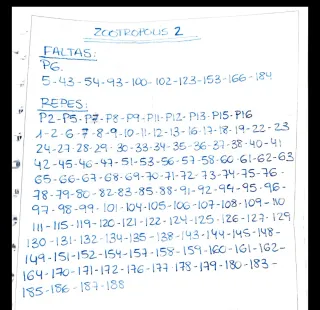 ZOOTROPOLIS 2
FALTAS:
P6.
5-43-54-93-100-102-123-153-166-184
REPES:
P2-P5-P7-P8-P9-P11-P12-P13-P15-P16
1-2-6-7-8-9-10-11-12-13-16-17-18-19-22-23
24-27-28-29-30-33-34-35-36-37-38-40-41
42-45-46-47-51-53-56-57-58-60-61-62-63
65-66-67-68-69-70-71-72-73-74-75-76-
78-79-80-82-83-85-88-91-92-94-95-96-
97-98-99-101-104-105-106-107-108-109-110
111-115-119-120-121-122-124-125-126-127-129
130-131-132-134-135-138-143-144-145-148-
149-151-152-154-157-158-159-160-161-162-
164-170-171-172-176-177-178-179-180-183-
185-186-187-188